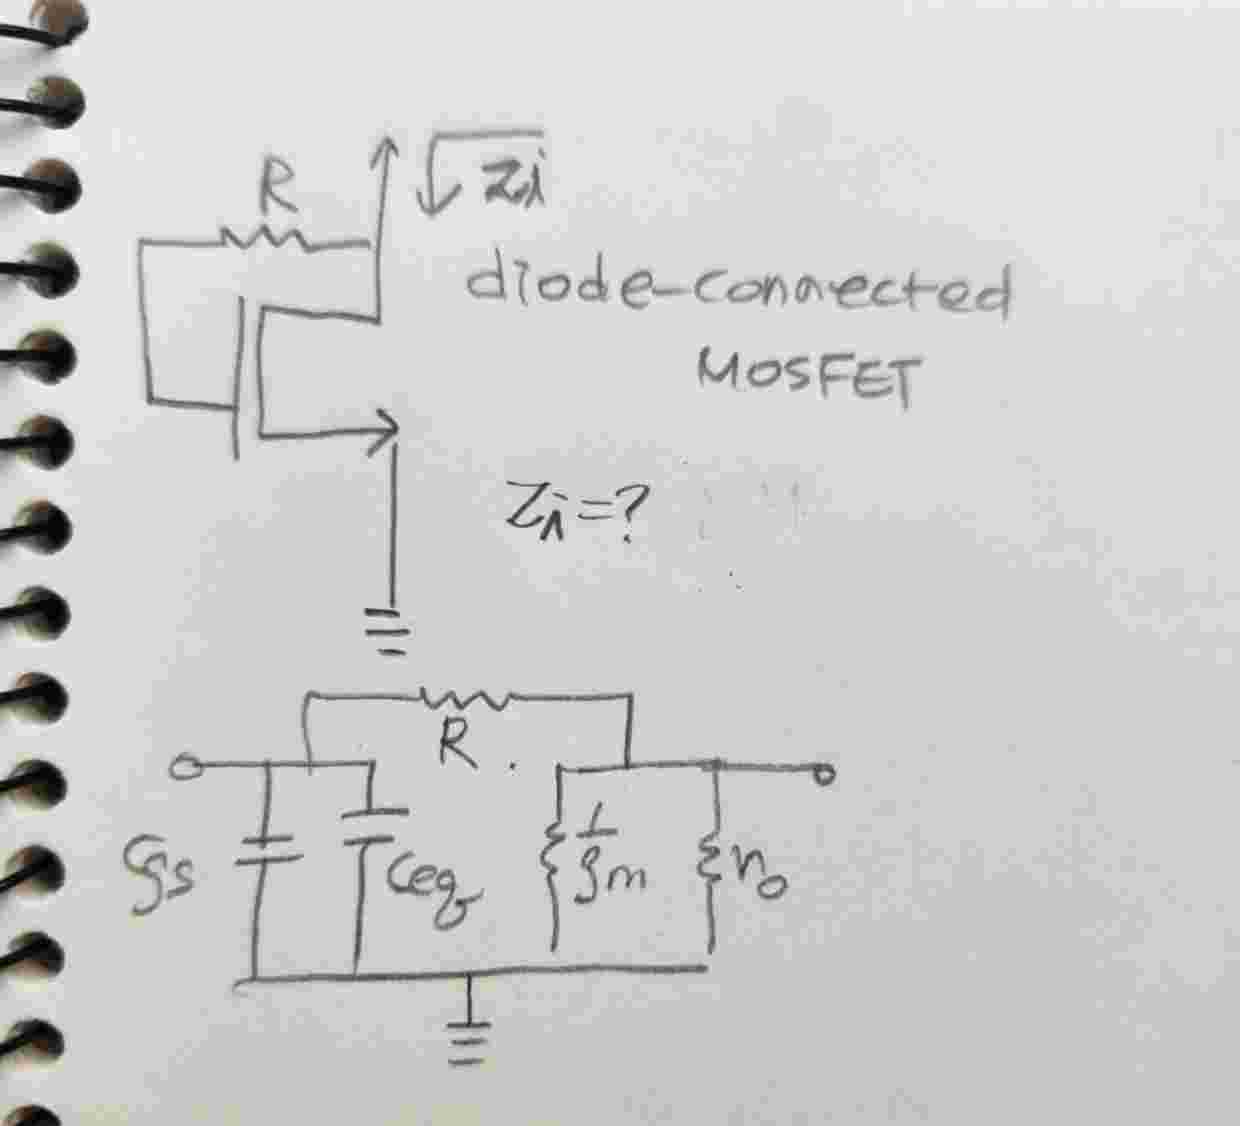 R
Zi
diode-connected
MOSFET
Zi=?
R
Cgs
Ceq
1/gm
ro